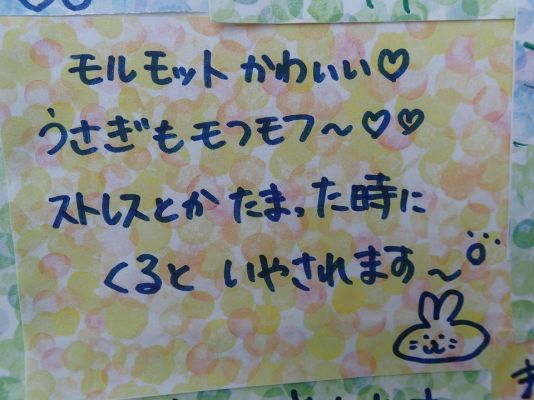 モルモットかわいい♡
うさぎもモフモフ～♡♡
ストレスとかたまった時に
くるといやされます～